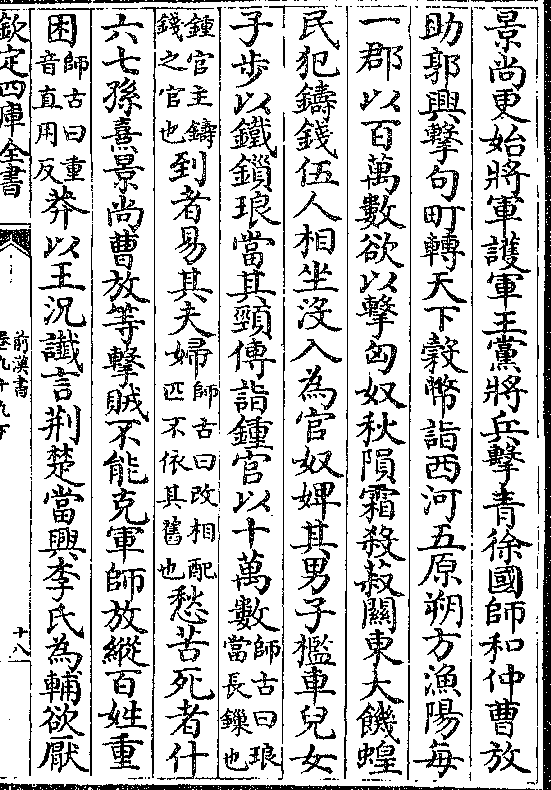 景尚更始將軍護軍王黨將兵擊青徐國師和仲曹放
助郭興擊句町轉天下榖幣詣西河五原朔方漁陽每
一郡以百萬數欲以擊匈奴秋隕霜殺菽關東大饑蝗
民犯鑄錢伍人相坐没入為官奴婢其男子檻車兒女
子步以鐵鎖琅當其頸傳詣鍾官以十萬數師古曰琅當長鏁也
鍾官主鑄錢之官也到者易其夫婦師古曰改相配匹不依其舊也愁苦死者什
六七孫熹景尚曹放等擊賊不能克軍師放縱百姓重
困師古曰重音直用反莽以王況讖言荆楚當興李氏為輔欲厭
欽定四庫全書
前漢書
卷九十九下
十八